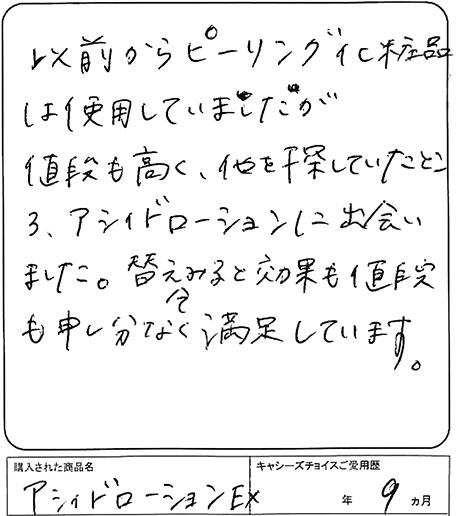 以前からピーリング化粧品
は使用していましたが
値段も高く、他を探していたとこ
ろ、アシィドローションに出会い
ました。替えみると効果も値段
も申し分なく満足しています。
全
購入された商品名
キャシーズチョイスご愛用歴
アシィドローションEX
年 9 ヵ月